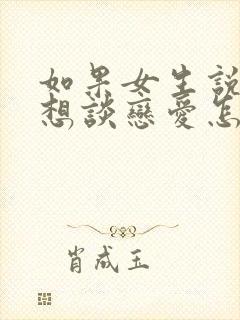 如果女生說
想談戀愛怎
肖成玉